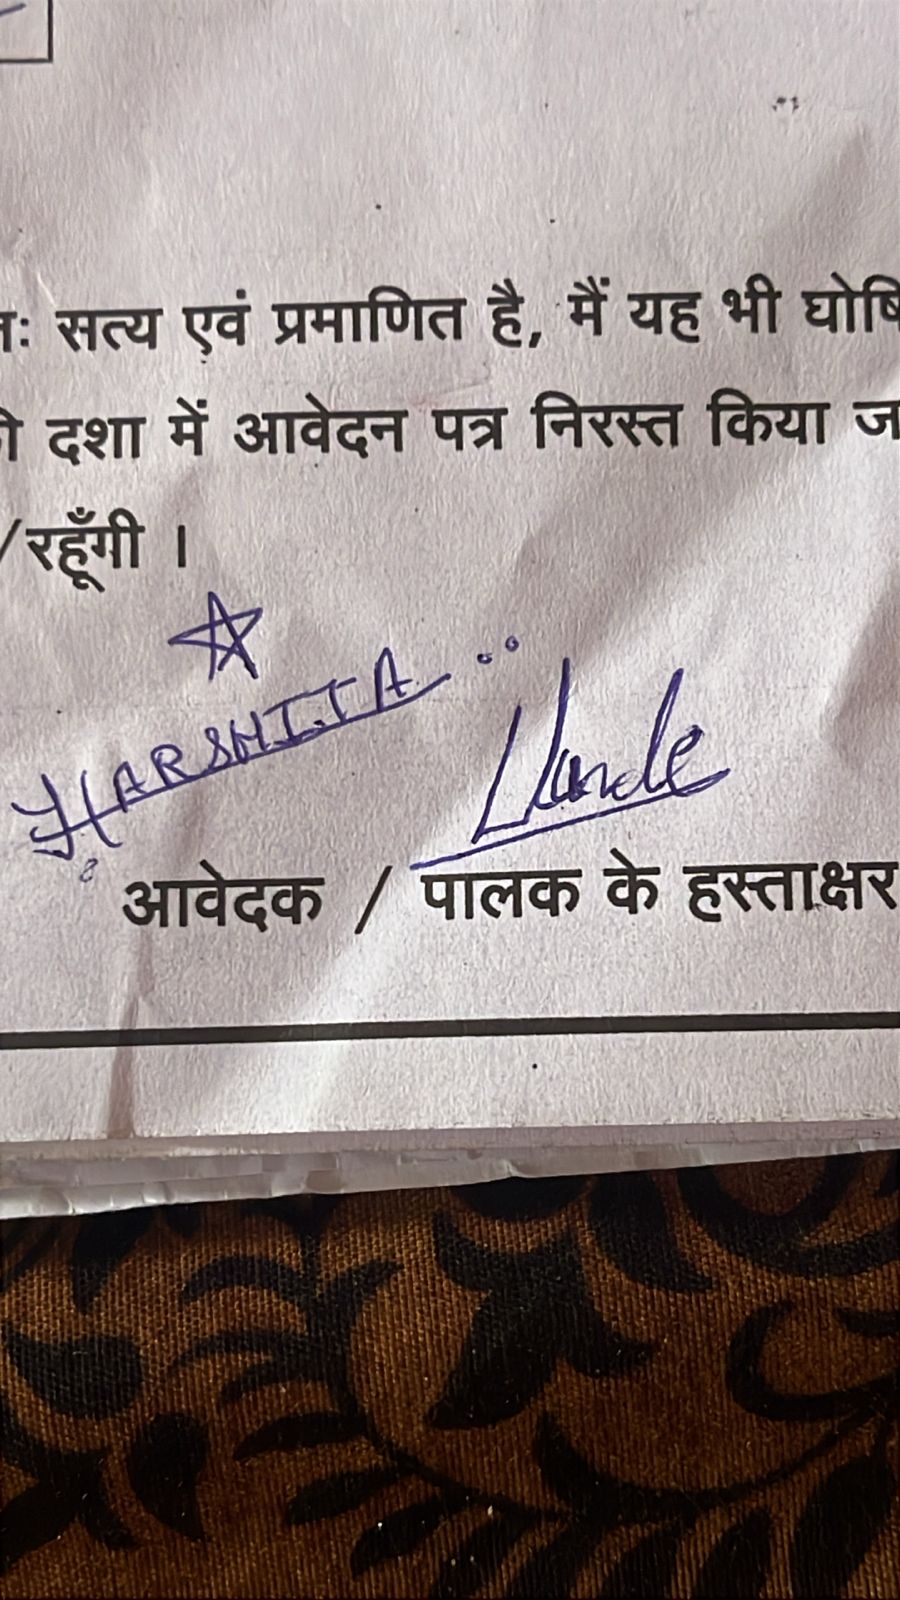 सत्य एवं प्रमाणित है, मैं यह भी
दशा में आवेदन पत्र निरस्त किया
/रहूँगी ।
HARSHITA
आवेदक / पालक के हस्ताक्षर